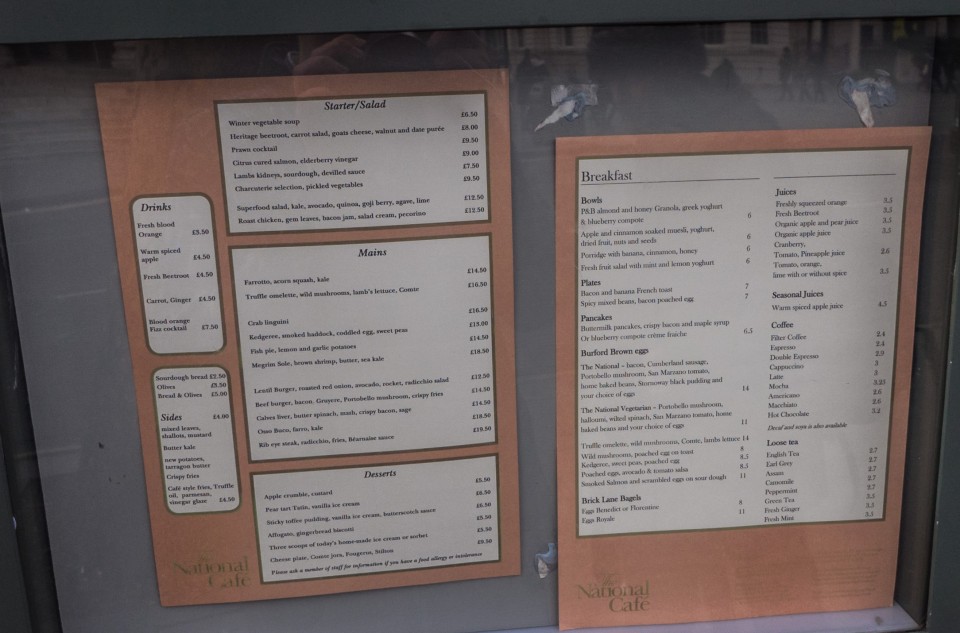 Starter/Salad
Winter vegetable soup £6.50
Heritage beetroot, carrot salad, goats cheese, walnut and date purée £8.00
Prawn cocktail £9.50
Citrus cured salmon, elderberry vinegar £9.00
Lambs kidneys, sourdough, devilled sauce £7.50
Charcuterie selection, pickled vegetables £9.50
Superfood salad, kale, avocado, quinoa, goji berry, agave, lime £12.50
Roast chicken, gem leaves, bacon jam, salad cream, pecorino £12.50
Drinks
Fresh blood
Orange £3.50
Warm spiced
apple £4.50
Fresh Beetroot £4.50
Carrot, Ginger £4.50
Blood orange
Fizz cocktail £7.50
Sourdough bread £2.50
Olives £3.50
Bread & Olives £5.00
Sides £4.00
mixed leaves,
shallots, mustard
Butter kale
new potatoes,
tarragon butter
Crispy fries
Café style fries, Truffle
oil, parmesan,
vinegar glaze £4.50
Mains
Farrotto, acorn squash, kale £14.50
Truffle omelette, wild mushrooms, lamb's lettuce, Comte £16.50
Crab linguini £16.50
Kedgeree, smoked haddock, coddled egg, sweet peas £13.00
Fish pie, lemon and garlic potatoes £14.50
Megrim Sole, brown shrimp, butter, sea kale £18.50
Lentil Burger, roasted red onion, avocado, rocket, radicchio salad £12.50
Beef burger, bacon, Gruyere, Portobello mushroom, crispy fries £14.50
Calves liver, butter spinach, mash, crispy bacon, sage £14.50
Osso Buco, farro, kale £18.50
Rib eye steak, radicchio, fries, Béarnaise sauce £19.50
Desserts
Apple crumble, custard £5.50
Pear tart Tatin, vanilla ice cream £6.50
Sticky toffee pudding, vanilla ice cream, butterscotch sauce £6.50
Affogato, gingerbread biscotti £5.50
Three scoops of today's home-made ice cream or sorbet £5.50
Cheese plate, Comte jura, Fougerus, Stilton £9.50
Please ask a member of staff for information if you have a food allergy or intolerance
The
National
Café
Breakfast
Bowls
P&B almond and honey Granola, greek yoghurt
& blueberry compote 6
Apple and cinnamon soaked muesli, yoghurt,
dried fruit, nuts and seeds 6
Porridge with banana, cinnamon, honey 6
Fresh fruit salad with mint and lemon yoghurt 6
Plates
Bacon and banana French toast 7
Spicy mixed beans, bacon poached egg 7
Pancakes
Buttermilk pancakes, crispy bacon and maple syrup
Or blueberry compote crème fraiche 6.5
Burford Brown eggs
The National – bacon, Cumberland sausage,
Portobello mushroom, San Marzano tomato,
home baked beans, Stornoway black pudding and
your choice of eggs 14
The National Vegetarian – Portobello mushroom,
halloumi, wilted spinach, San Marzano tomato, home
baked beans and your choice of eggs 11
Truffle omelette, wild mushrooms, Comte, lambs lettuce 14
Wild mushrooms, poached egg on toast 8
Kedgeree, sweet peas, poached egg 8.5
Poached eggs, avocado & tomato salsa 8.5
Smoked Salmon and scrambled eggs on sour dough 11
Brick Lane Bagels
Eggs Benedict or Florentine 8
Eggs Royale 11
Juices
Freshly squeezed orange 3.5
Fresh Beetroot 3.5
Organic apple and pear juice 3.5
Organic apple juice 3.5
Cranberry,
Tomato, Pineapple juice 2.6
Tomato, orange,
lime with or without spice 3.5
Seasonal Juices
Warm spiced apple juice 4.5
Coffee
Filter Coffee 2.4
Espresso 2.4
Double Espresso 2.9
Cappuccino 3
Latte 3
Mocha 3.25
Americano 2.6
Macchiato 2.6
Hot Chocolate 3.2
Decaf and soya is also available
Loose tea
English Tea 2.7
Earl Grey 2.7
Assam 2.7
Camomile 2.7
Peppermint 2.7
Green Tea 3.5
Fresh Ginger 3.5
Fresh Mint 3.5
The
National
Café